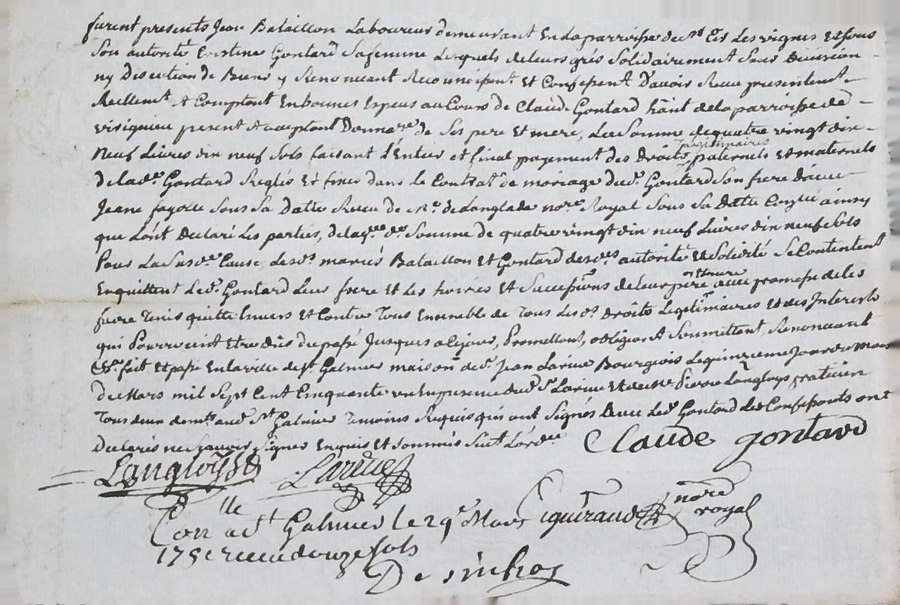 furent presents Jean Bataillon Laboureur demeurant En la parroisse de st Cir Les vignes Et sous
Son autorité Gontard Sa femme Lesquels de leurs grés Solidairement Sans division
ny Discution de Biens y Renonceant Reconnoissent Et Confessent D'avoir Receu presentent
Reellemt A Comptant En bonnes Especes au Cours de Claude Gontard hãnt de la parroisse de
present Acceptant Donnare de Ses pere Et mere, La Somme de quatre vingt dix
Neuf Livres dix neuf Sols faisant L'Entier et final payement des Droits legitimaires paternels Et maternels
de lade Gontard Reglés Et fixés dans le Contrat de mariage dud Gontard Son frere avec
Jeane fayolle Sous Sa Datte Receu de Me de Langlade nore Royal Sous Sa Datte ainsy
que L'ont Declaré Les parties, de laqlle de Somme de quatre vingt dix neuf Livres dix neuf Sols
Pour La Susde Cause, Lesds mariés Bataillon et Gontard desdes autorité Et Solidité Se Contentent
En quittent Led Gontard Leur frere et Les hoiries Et Successions de Leurs pere et mere avec promesse de les
faire Tenir quitte Envers Et Contre Tous Ensemble de Tous Lesds Droits Legitimaires Et des Interests
qui Pourroient Etre dûs du passé Jusques a Ce jour, Promettant, obligeant Soumettant Renonceant
fait et passé En la ville de st Galmier maison de Sr Jean Larive Bourgeois Le quinzieme Jour du Mois
De Mars mil Sept Cent Cinquante un En presence dud Sr Larive Et de Sr Langloys praticien
Tous deux demts aud St Galmier Temoins Requis qui ont Signés avec Led Gontard Les Confessants ont
Declarés ne Sçavoir Signer Enquis et Sommés Suivt L'ordce
Claude gontard
Langloys Larive
Conlle a St Galmier le 29e Mars 1751 receu douze sols
nore royal